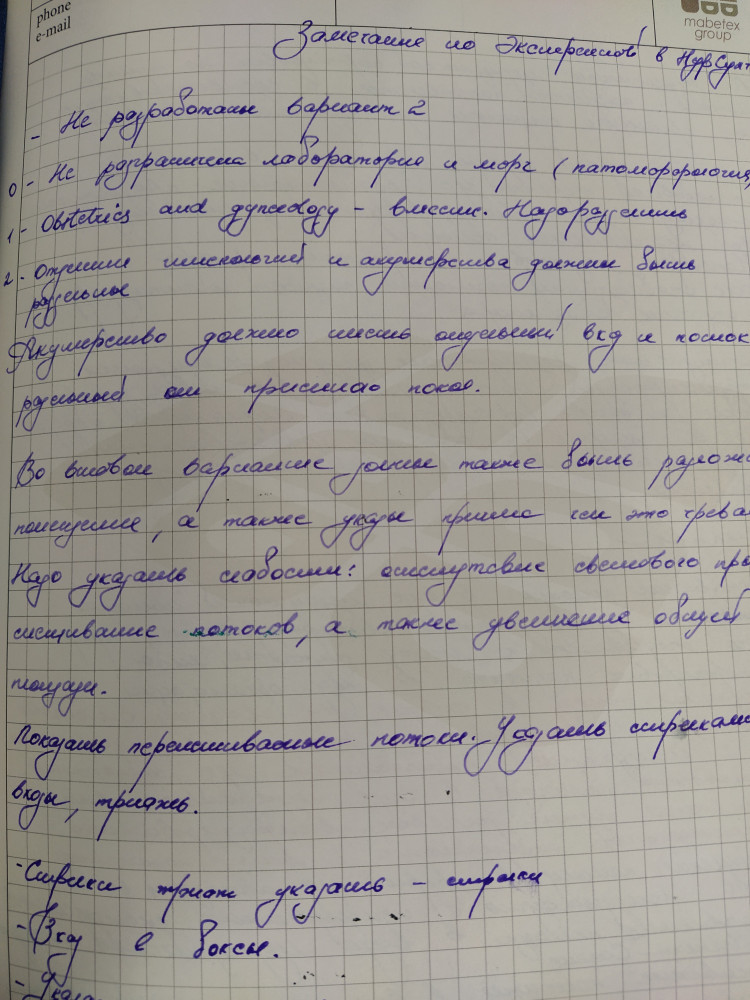 phone
e-mail
mabetex
group
Замечание по Экспертизой в НурСулт
- Не разработан вариант 2
0 - Не разграничена лаборатория и морг (патоморфология,
1 - Obstetrics and gynecology - вместе. Надо разделить
2. отделения и акушерства должны быть
раздельные
Акушерство должно иметь отдельный вход и поток
раздельный от приемного покоя.
Во втором варианте должны также быть разложе
помещение, а также указы прямо чем это чрева
Надо указать слабости: отсутствие светового про
смешивание потоков, а также увеличение общей
площади.
Показать перемешиваемые потоки. Указать стрелками
входы, триажь.
- Стрелки триаж указать - стрелки
- Вход в боксы.
- Указа